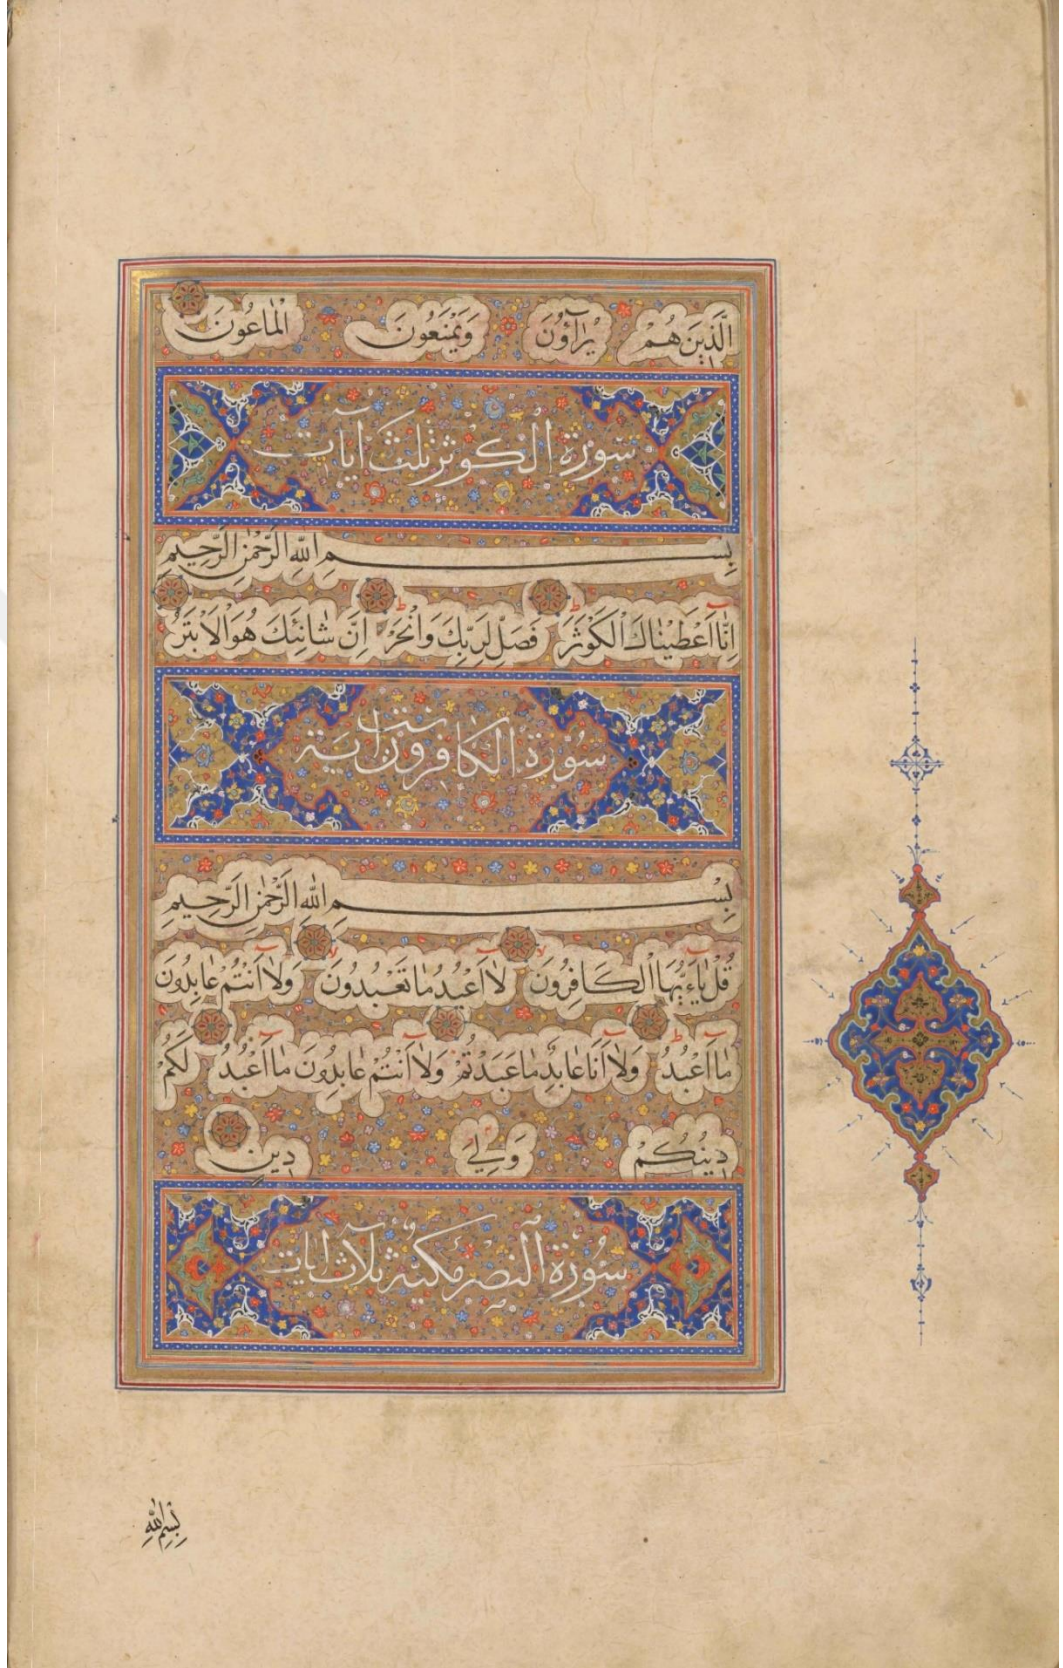 الَّذِينَ هُمْ يُرَآؤُنَ وَيَمْنَعُونَ الْمَاعُونَ
سورة الكوثر ثلث آيات
بِسْمِ اللّٰهِ الرَّحْمٰنِ الرَّحِيمِ
اِنَّا اَعْطَيْنَاكَ الْكَوْثَرَ فَصَلِّ لِرَبِّكَ وَانْحَرْ اِنَّ شَانِئَكَ هُوَ الْاَبْتَرُ
سُورة الكافرون ست اية
بِسْمِ اللّٰهِ الرَّحْمٰنِ الرَّحِيمِ
قُلْ يَاءَيُّهَا الْكَافِرُونَ لَا اَعْبُدُ مَا تَعْبُدُونَ وَلَا اَنْتُمْ عَابِدُونَ
مَا اَعْبُدُ وَلَا اَنَا عَابِدٌ مَا عَبَدْتُمْ وَلَا اَنْتُمْ عَابِدُونَ مَا اَعْبُدُ لَكُمْ
دِينُكُمْ وَلِيَ دِينِ
سُورة النصر مكية ثلاث آيات
بِسْمِ اللّٰهِ